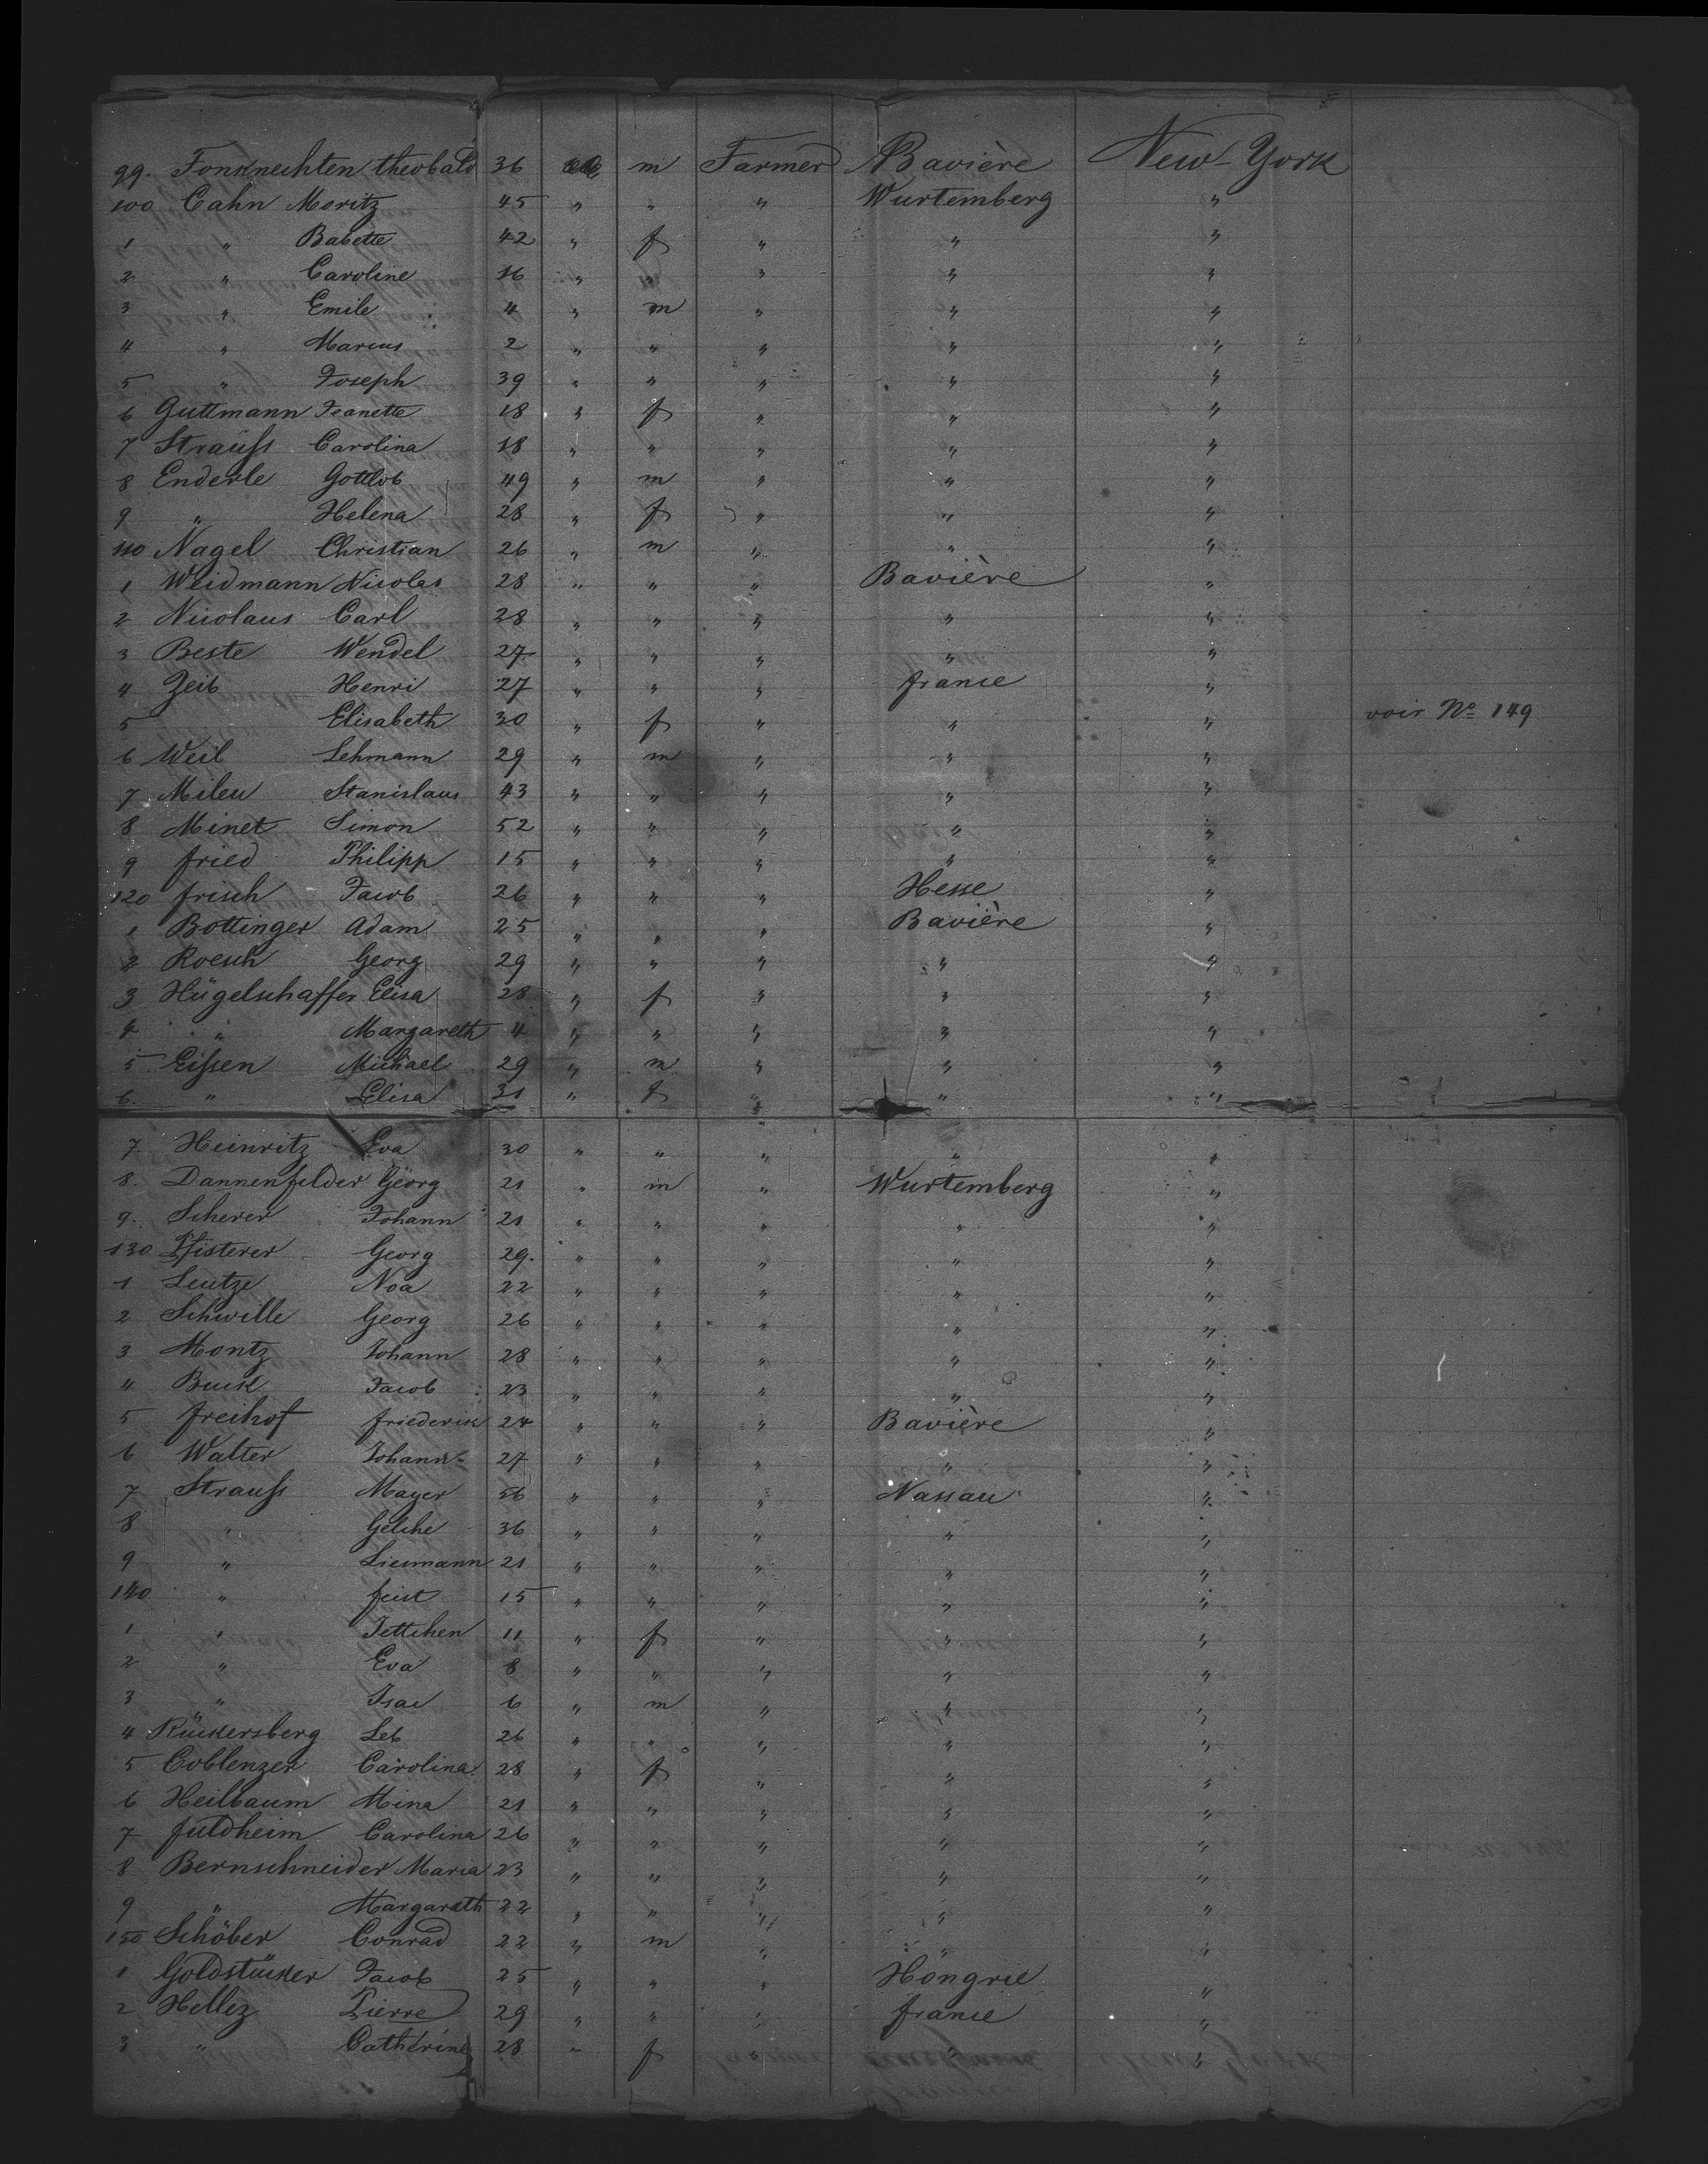 99. Fonknechten theobald 36 m Farmer Bavière New-York
100 Cahn Moritz 45 " " " Wurtemberg "
1 " Babette 42 " f " " "
2 " Caroline 16 " " " " "
3 " Emile 4 " m " " "
4 " Marcus 2 " " " " "
5 " Joseph 39 " " " " "
6 Guttmann Jeanette 18 " f " " "
7 Strauss Carolina 18 " " " " "
8 Enderle Gottlob 49 " m " " "
9 " Helena 28 " f " " "
110 Nagel Christian 26 " m " " "
1 Weidmann Nicolas 28 " " " Bavière "
2 Nicolaus Carl 28 " " " " "
3 Beste Wendel 27 " " " " "
4 Zeib Henri 27 " " " france "
5 Elisabeth 30 " f " " " voir No 149
6 Weil Lehmann 29 " m " " "
7 Mileu Stanislaus 43 " " " " "
8 Minet Simon 52 " " " " "
9 fried Philipp 15 " " " " "
120 frisch Jacob 26 " " " Hesse "
1 Bottinger Adam 25 " " " Bavière "
2 Roesch Georg 29 " " " " "
3 Hügelschaffer Elisa 28 " f " " "
4 " Margareth 4 " " " " "
5 Eissen Michael 29 " m " " "
6. " Elisa 31 " f " " "
7. Heinritz Eva 30 " " " " "
8. Dannenfelder Georg 21 " m " Wurtemberg "
9. Scherer Johann 21 " " " " "
130 Pfisterer Georg 29. " " " " "
1 Leutze Noa 22 " " " " "
2 Schwille Georg 26 " " " " "
3 Montz Johann 28 " " " " "
" Buck Jacob 23 " " " " "
5 freihof friederik 24 " " " Bavière "
6 Walter Johann 27 " " " " "
7 Strauss Mayer 56 " " " Nassau "
8 " Gelche 36 " " " " "
9 " Liesmann 21 " " " " "
140 " feist 15 " " " " "
1 " Jettchen 11 " f " " "
2 " Eva 8 " " " " "
3 " Isac 6 " m " " "
4 Rückersberg Leb 26 " " " " "
5 Coblenzer Carolina 28 " f " " "
6 Heilbaum Mina 21 " " " " "
7 fuldheim Carolina 26 " " " " "
8 Bernschneider Maria 23 " " " " "
9 " Margarath 22 " " " " "
150 Schöber Conrad 22 " m " " "
1 Goldstücker Jacob 25 " " " Hongrie "
2 Hellez Pierre 29 " " " france "
3 " Catherine 28 " f " " "